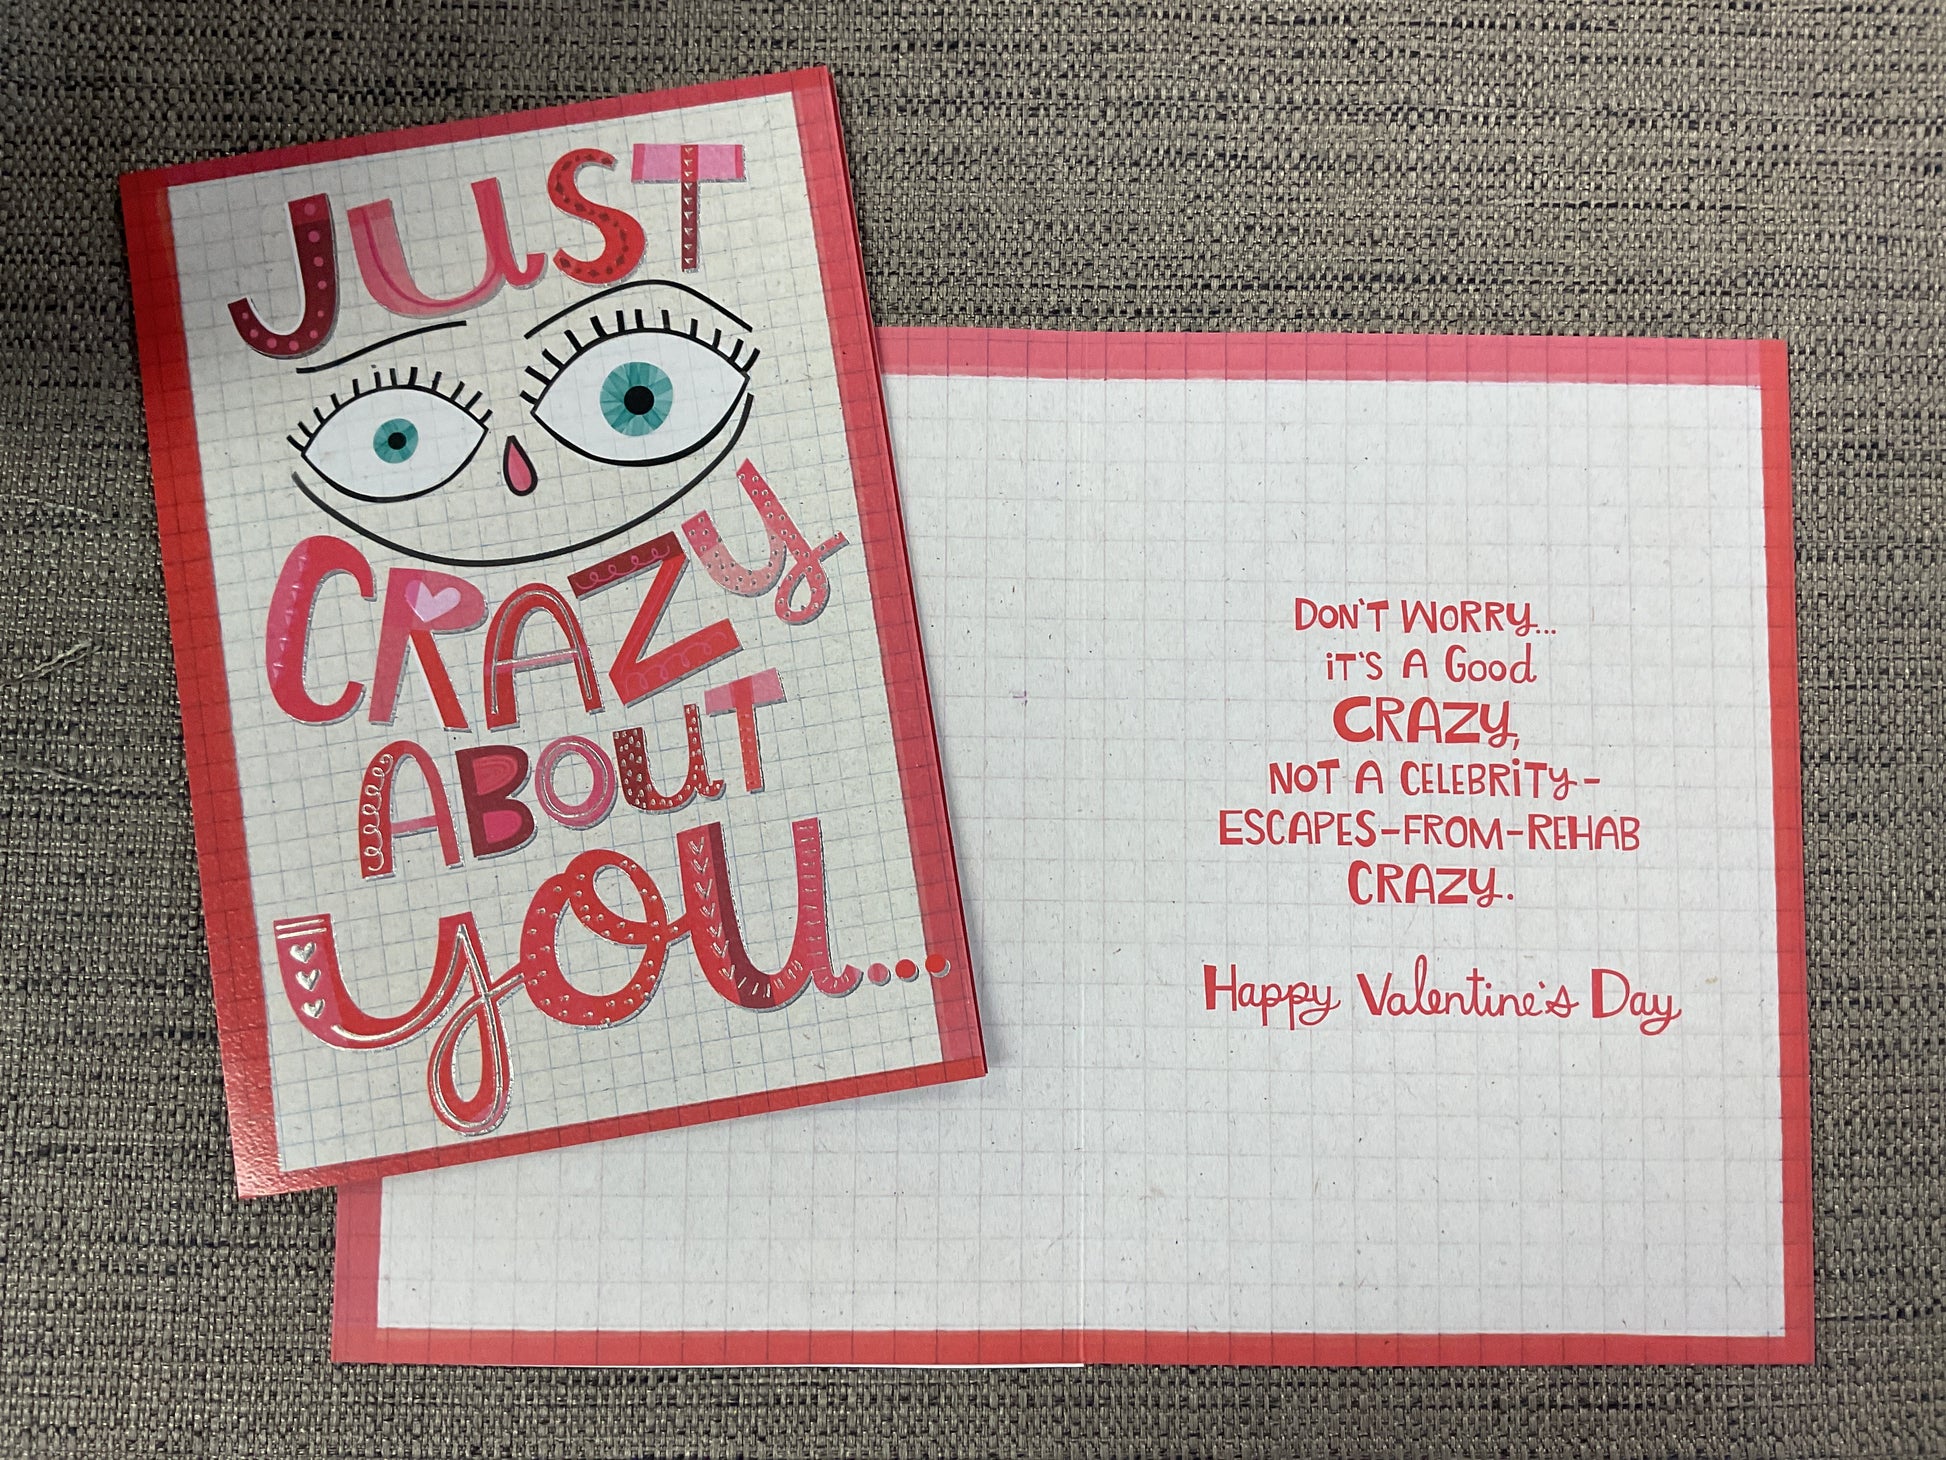 JUST
CRAZY
ABOUT
you...
DON'T WORRY...
iT'S A Good
CRAZY,
NOT A CELEBRiTy-
ESCAPES-FROM-REHAB
CRAZY.
Happy Valentine's Day